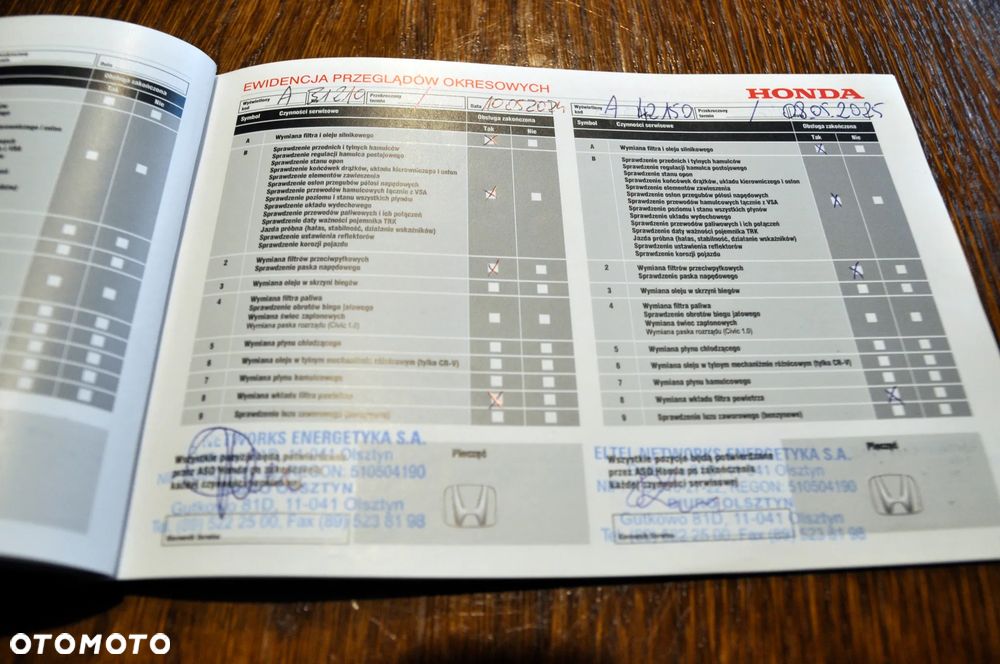 EWIDENCJA PRZEGLĄDÓW OKRESOWYCH
HONDA
Obsługa zakończona
Tak Nie
Wyświetlony kod A 31210 Przekroczony termin / Data 10.05.2024
Symbol Czynności serwisowe Obsługa zakończona
Tak Nie
A Wymiana filtra i oleju silnikowego
B Sprawdzenie przednich i tylnych hamulców
Sprawdzenie regulacji hamulca postojowego
Sprawdzenie stanu opon
Sprawdzenie końcówek drążków, układu kierowniczego i osłon
Sprawdzenie elementów zawieszenia
Sprawdzenie osłon przegubów półosi napędowych
Sprawdzenie przewodów hamulcowych łącznie z VSA
Sprawdzenie poziomu i stanu wszystkich płynów
Sprawdzenie układu wydechowego
Sprawdzenie przewodów paliwowych i ich połączeń
Sprawdzenie daty ważności pojemnika TRK
Jazda próbna (hałas, stabilność, działanie wskaźników)
Sprawdzenie ustawienia reflektorów
Sprawdzenie korozji pojazdu
2 Wymiana filtrów przeciwpyłkowych
Sprawdzenie paska napędowego
3 Wymiana oleju w skrzyni biegów
4 Wymiana filtra paliwa
Sprawdzenie obrotów biegu jałowego
Wymiana świec zapłonowych
Wymiana paska rozrządu (Civic 1.0)
5 Wymiana płynu chłodzącego
6 Wymiana oleju w tylnym mechanizmie różnicowym (tylko CR-V)
7 Wymiana płynu hamulcowego
8 Wymiana wkładu filtra powietrza
9 Sprawdzenie luzu zaworowego (benzynowe)
Wszystkie pozycje będą potwierdzone
przez ASO Honda po zakończeniu
każdej czynności serwisowej
Pieczęć
NETWORKS ENERGETYKA S.A.
11-041 Olsztyn
REGON: 510504190
OLSZTYN
Gutkowo 81D, 11-041 Olsztyn
Tel. (89) 522 25 00, Fax (89) 523 81 98
Kierownik Serwisu
Wyświetlony kod A 42150 Przekroczony termin / 08.05.2025
Symbol Czynności serwisowe Obsługa zakończona
Tak Nie
A Wymiana filtra i oleju silnikowego
B Sprawdzenie przednich i tylnych hamulców
Sprawdzenie regulacji hamulca postojowego
Sprawdzenie stanu opon
Sprawdzenie końcówek drążków, układu kierowniczego i osłon
Sprawdzenie elementów zawieszenia
Sprawdzenie osłon przegubów półosi napędowych
Sprawdzenie przewodów hamulcowych łącznie z VSA
Sprawdzenie poziomu i stanu wszystkich płynów
Sprawdzenie układu wydechowego
Sprawdzenie przewodów paliwowych i ich połączeń
Sprawdzenie daty ważności pojemnika TRK
Jazda próbna (hałas, stabilność, działanie wskaźników)
Sprawdzenie ustawienia reflektorów
Sprawdzenie korozji pojazdu
2 Wymiana filtrów przeciwpyłkowych
Sprawdzenie paska napędowego
3 Wymiana oleju w skrzyni biegów
4 Wymiana filtra paliwa
Sprawdzenie obrotów biegu jałowego
Wymiana świec zapłonowych
Wymiana paska rozrządu (Civic 1.0)
5 Wymiana płynu chłodzącego
6 Wymiana oleju w tylnym mechanizmie różnicowym (tylko CR-V)
7 Wymiana płynu hamulcowego
8 Wymiana wkładu filtra powietrza
9 Sprawdzenie luzu zaworowego (benzynowe)
Wszystkie pozycje będą potwierdzone
przez ASO Honda po zakończeniu
każdej czynności serwisowej
Pieczęć
ELTEL NETWORKS ENERGETYKA S.A.
11-041 Olsztyn
REGON: 510504190
BIURO OLSZTYN
Gutkowo 81D, 11-041 Olsztyn
Tel. (89) 522 25 00, Fax (89) 523 81 98
Kierownik Serwisu
OTOMOTO